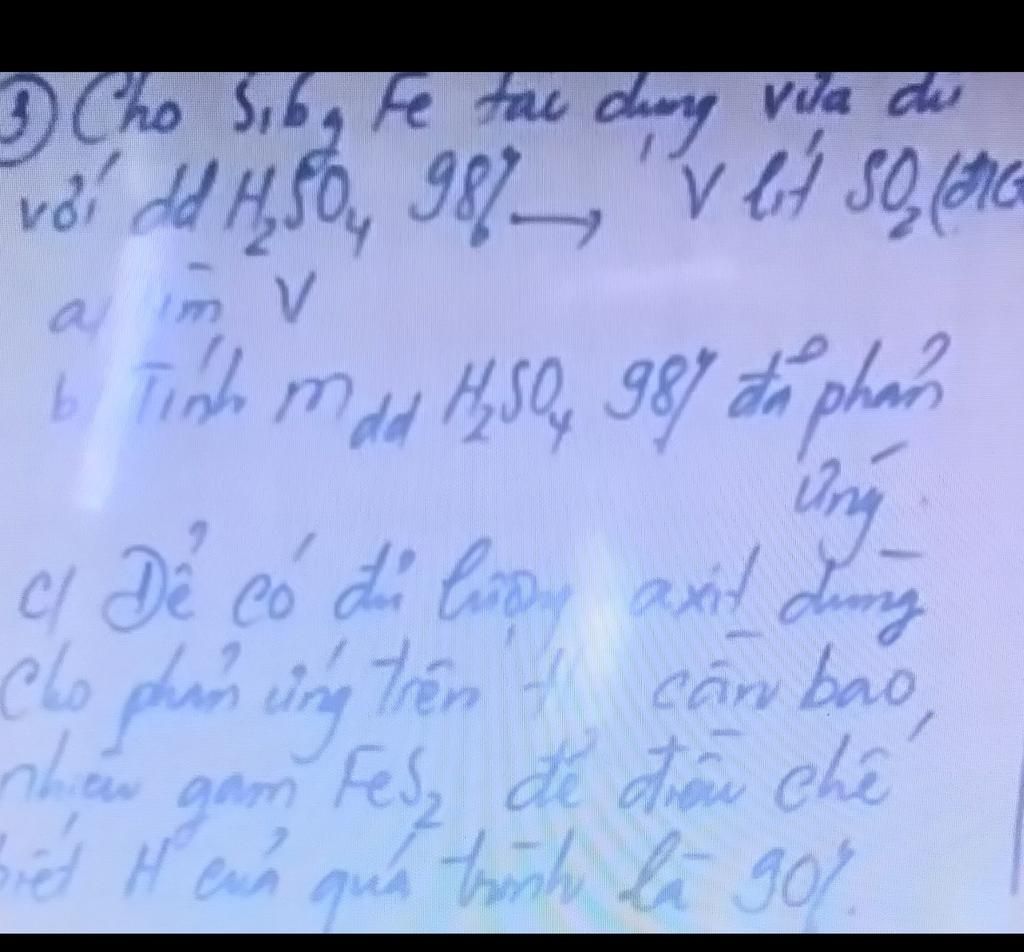 ③ Cho 5,6g Fe tác dụng vừa đủ
với dd H₂SO₄ 98% → V lít SO₂ (đkc
a/ Tìm V
b Tính m dd H₂SO₄ 98% đã phản
ứng
c/ Để có đủ lượng axit dùng
cho phản ứng trên cần bao
nhiêu gam FeS₂ để điều chế
biết H của quá trình là 90%.